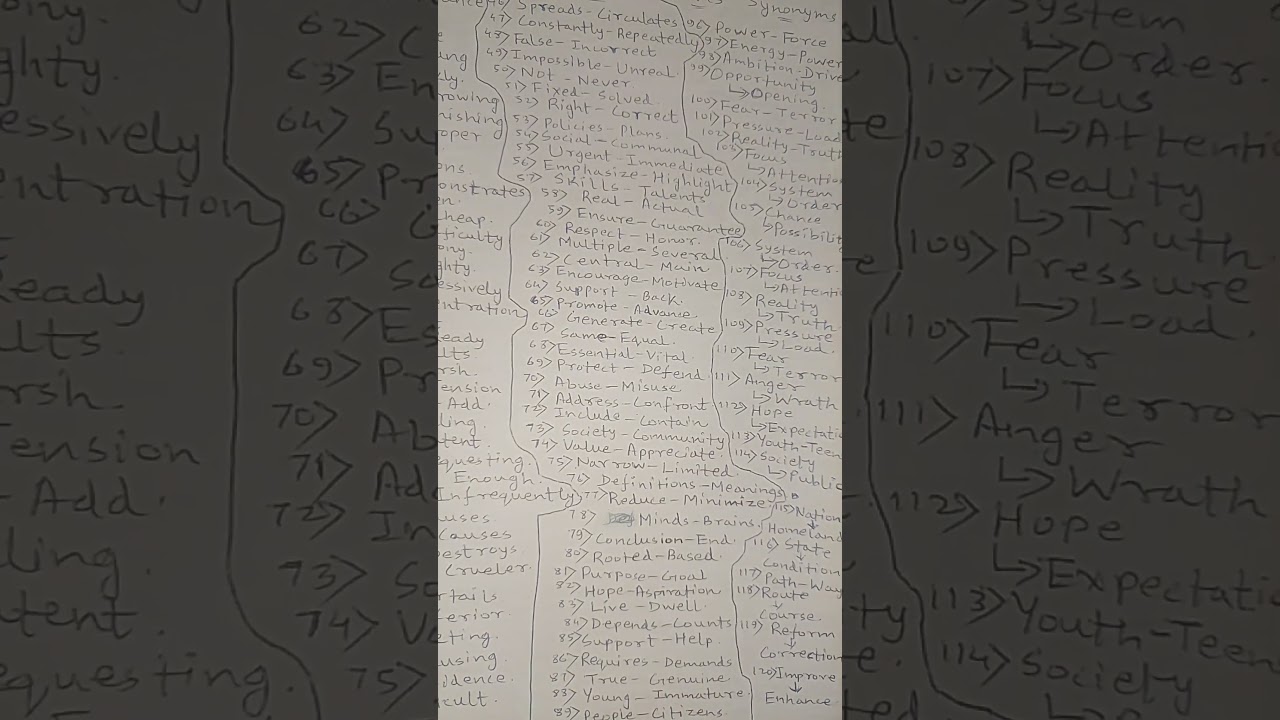 Synonyms
46> Spreads-Circulates
47> Constantly-Repeatedly
48> False-Incorrect
49> Impossible-Unreal
50> Not-Never
51> Fixed-Solved.
52> Right-Correct
53> Policies-Plans.
54> Social-Communal
55> Urgent-Immediate
56> Emphasize-Highlight
57> Skills-Talents
58> Real-Actual
59> Ensure-Guarantee
60> Respect-Honor.
61> Multiple-Several
62> Central-Main
63> Encourage-Motivate
64> Support-Back.
65> Promote-Advance
66> Generate-Create
67> Same-Equal.
68> Essential-Vital.
69> Protect-Defend.
70> Abuse-Misuse
71> Address-Confront
72> Include-Contain
73> Society-Community
74> Value-Appreciate.
75> Narrow-Limited.
76> Definitions-Meanings
77> Reduce-Minimize
78> Minds-Brains.
79> Conclusion-End.
80> Rooted-Based.
81> Purpose-Goal
82> Hope-Aspiration
83> Live-Dwell.
84> Depends-Counts
85> Support-Help.
86> Requires-Demands
87> True-Genuine.
88> Young-Immature
89> People-Citizens.
96> Power-Force
97> Energy-Power
98> Ambition-Drive
99> Opportunity
↳Opening.
100> Fear-Terror
101> Pressure-Load
102> Reality-Truth
103> Focus
↳Attenti
104> System
↳Order
105> Chance
↳Possibilit
106> System
↳Order.
107> Focus
↳Attenti
108> Reality
↳Truth.
109> Pressure
↳Load.
110> Fear
↳Terror
111> Anger
↳Wrath
112> Hope
↳Expectati
113> Youth-Teen
114> Society
↳Public
115> Nation
↓
Homeland
116> State
↓
Condition
117> Path-Way
118> Route
↓
Course.
119> Reform
↓
Correction
120> Improve
↓
Enhance